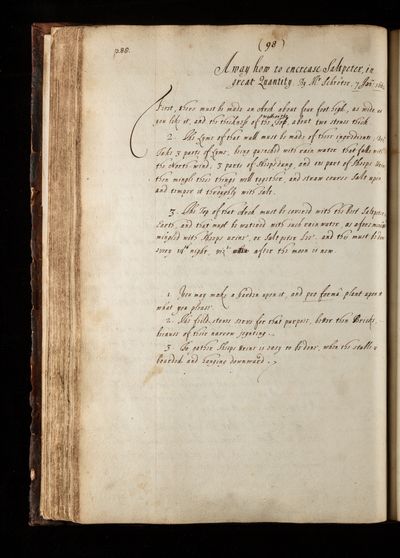 p. 88.
(98)
A way how to encrease Saltpeter, in
great Quantity. By Mr. Schroter. 7 Mar:
First, there must be made an Arch about four foot high, as wide as
you like it, and the thickness of the Top, about two stones thick.
2. The Lyme of that wall must be made of these ingredients,
Take 3 parts of Lyme, being quenched with rain water that falls with
the North-wind, 3 parts of Sheeps dung, and one part of Sheeps
then mingle these things well together, and straw coarse Salt upon
and temper it throughly with salt.
3. The Top of that Arch must be covered with the best Saltpeter
Earth, and that must be watered with such rain water as afore
mingled with Sheeps urine, or Saltpeter Lee. and this must be
every 14th night, viz: after the moon is new
1. You may make a Garden upon it, and pro forma plant upon
what you please.
2. The field stones serve for that purpose, better then Bricks,
because of their narrow joynting.
3. To gather Sheeps Urine is easy to be done, when the stall
boarded and hanging downward.